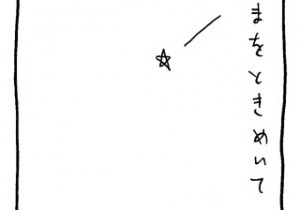 まをときめいて